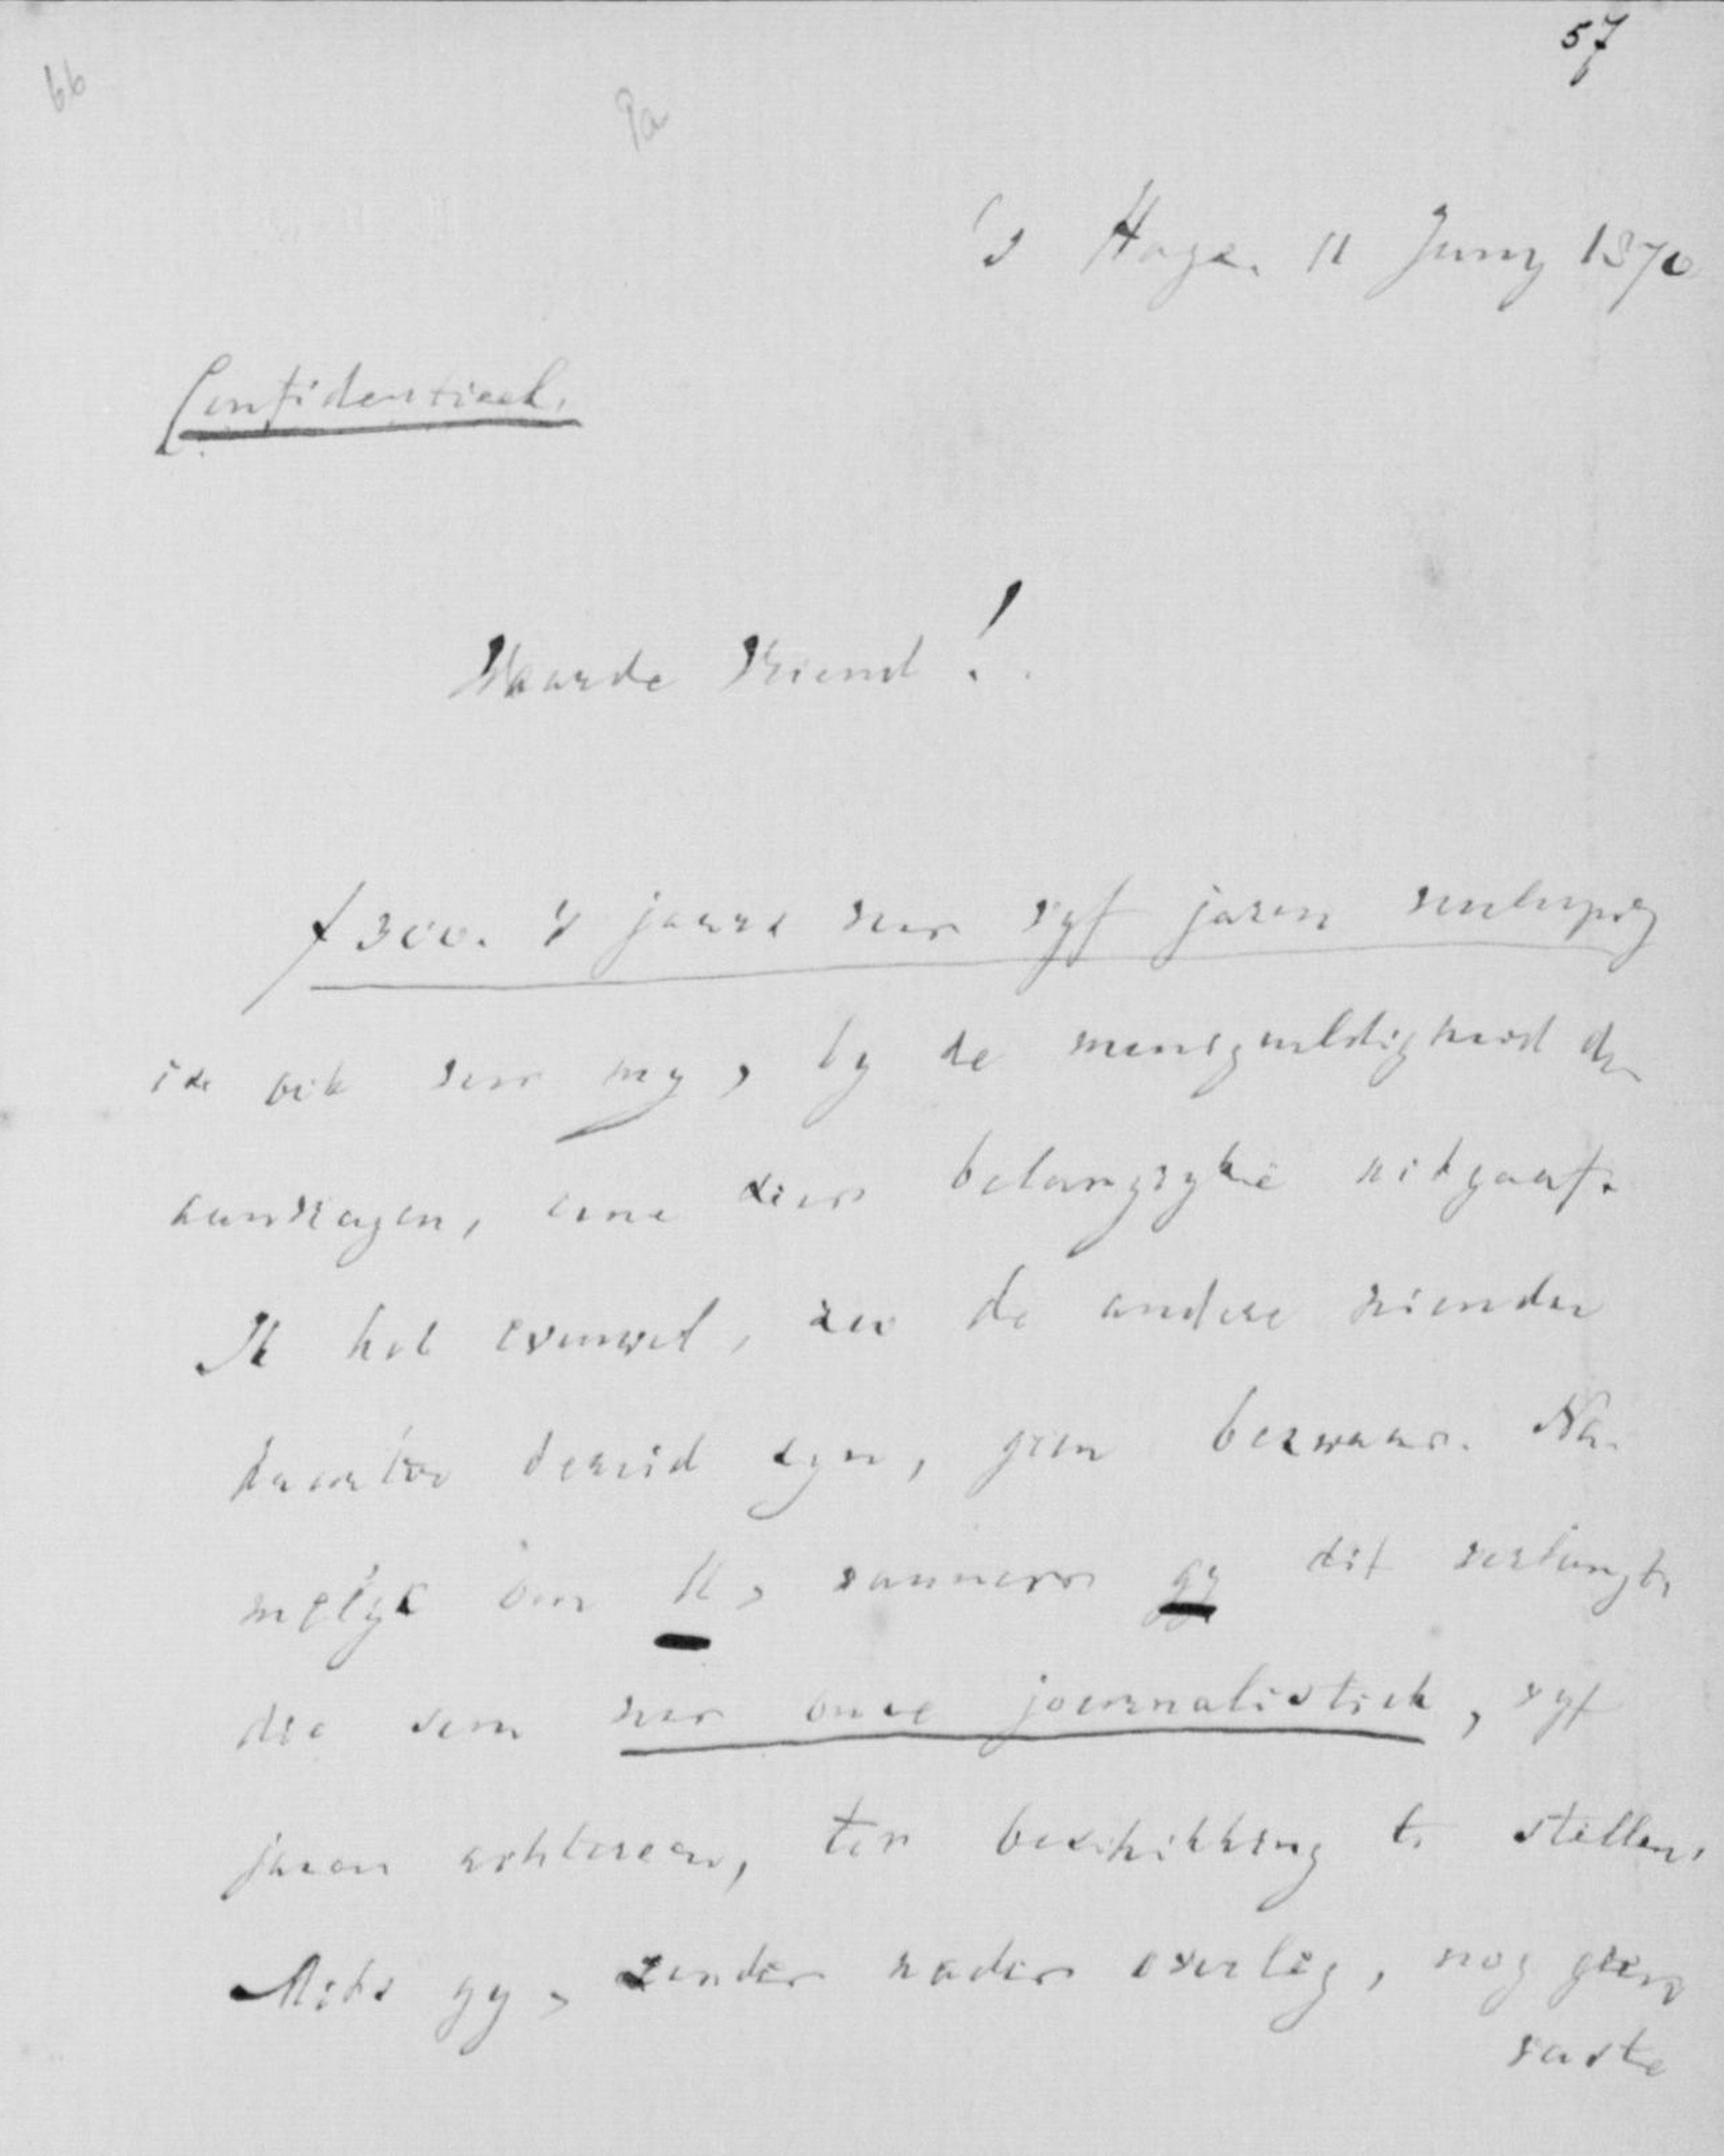 57
66
9a
's Hage. 11 Juny 1870
Confidentieel.
Waarde Vriend!
f 300. 's jaars voor vyf jaren
is ook voor my, by de menigvuldigheid der
aanvragen, eene zeer belangryke uitgaaf.
Ik heb evenwel, zoo de andere vrienden
daartoe bereid zyn, geen bezwaar. Na-
melyk om U, wanneer gy dit verlangt,
die som voor onze journalistiek, vyf
jaren achtereen, ter beschikking te stellen,
Mits gy, zonder nader overleg, nog geen
vaste